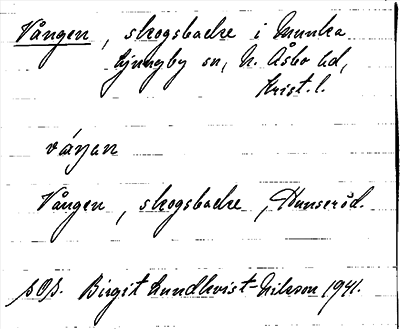 Vången, skogsbacke i Munka
Ljungby sn, N. Åsbo hd,
Krist. l.
váŋan
Vången, skogsbacke, Hunseröd.
Birgit Lundkvist-Nilsson 1941.